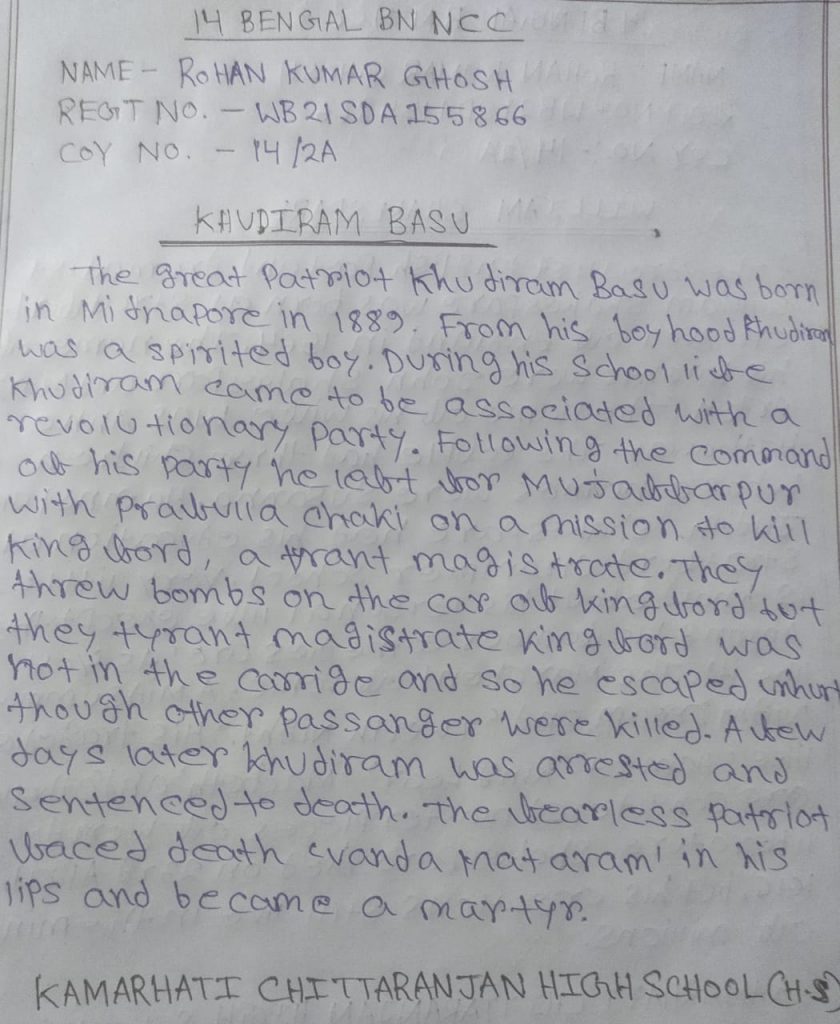 14 BENGAL BN NCC
NAME - ROHAN KUMAR GHOSH
REGT NO. - WB21SDA155866
COY NO. - 14/2A
KHUDIRAM BASU
The great Patriot Khudiram Basu was born
in Midnapore in 1889. From his boyhood Khudiram
was a spirited boy. During his School life
Khudiram came to be associated with a
revolutionary party. Following the command
of his party he left for Mujaffarpur
with Prafulla Chaki on a mission to kill
King ford, a tyrant magistrate. They
threw bombs on the car of kingford but
they tyrant magistrate kingford was
not in the carrige and so he escaped unhurt
though other passanger were killed. A few
days later khudiram was arrested and
Sentenced to death. The fearless patriot
faced death 'vanda mataram' in his
lips and became a martyr.
KAMARHATI CHITTARANJAN HIGH SCHOOL (H.S)